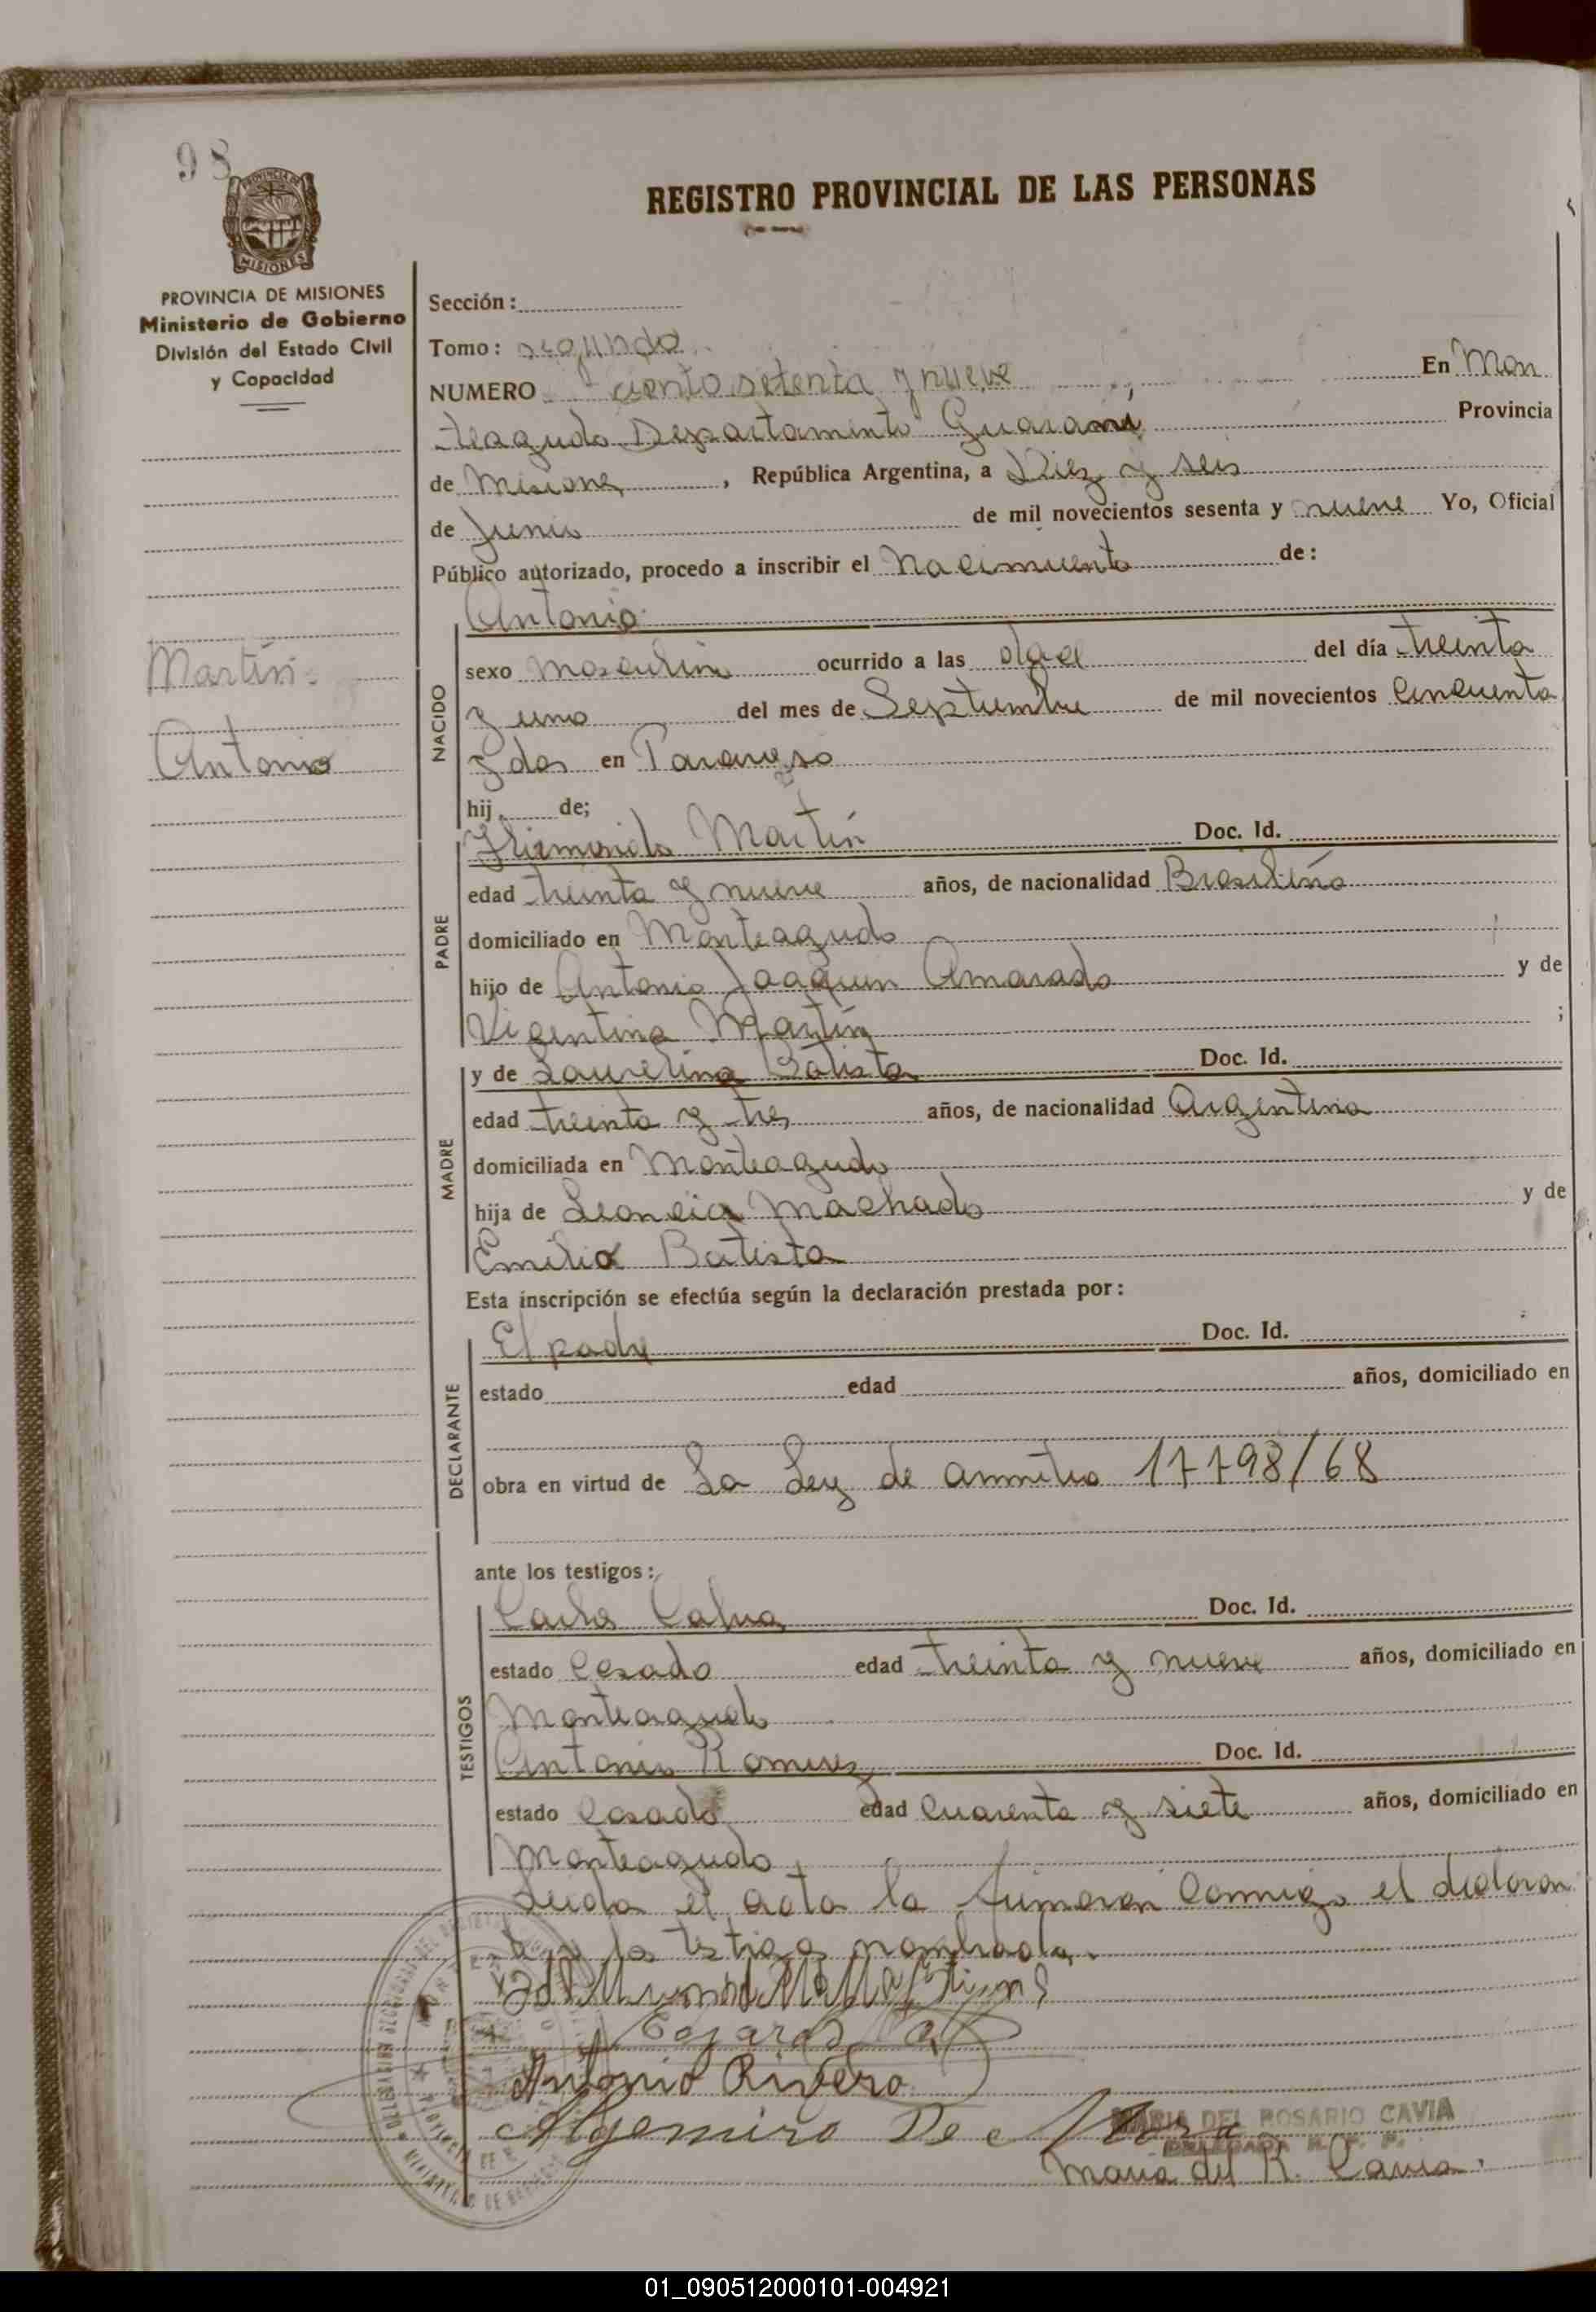 98
REGISTRO PROVINCIAL DE LAS PERSONAS
PROVINCIA DE
MISIONES
PROVINCIA DE MISIONES
Ministerio de Gobierno
División del Estado Civil
y Capacidad
Sección:
Tomo: segundo
NUMERO ciento setenta y nueve En Mon
teagudo Departamento Guaraní Provincia
de Misiones, República Argentina, a Diez y seis
de Junio de mil novecientos sesenta y nueve Yo, Oficial
Público autorizado, procedo a inscribir el Nacimiento de:
Martín
Antonio
NACIDO
Antonio
sexo masculino ocurrido a las doce del día treinta
y uno del mes de Septiembre de mil novecientos cincuenta
y dos en
hij de;
PADRE
Martín Doc. Id.
edad treinta y nueve años, de nacionalidad Brasileña
domiciliado en Monteagudo
hijo de Antonio Joaquin Amarado y de
Martín ;
MADRE
y de Laurelina Batista Doc. Id.
edad treinta y tres años, de nacionalidad Argentina
domiciliada en Monteagudo
hija de Leoncia Machado y de
Emilio Batista
Esta inscripción se efectúa según la declaración prestada por:
DECLARANTE
El padre Doc. Id.
estado edad años, domiciliado en
obra en virtud de La Ley de 17798/68
ante los testigos:
TESTIGOS
Doc. Id.
estado Casado edad treinta y nueve años, domiciliado en
Monteagudo
Antonio Doc. Id.
estado Casado edad cuarenta y siete años, domiciliado en
Monteagudo
Leida el acta la firmaron conmigo el declaran
te y los testigos nombrados.
Antonio Rivero
Algemiro De
MARIA DEL ROSARIO CAVIA
DELEGADA R. P. P.
Maria del R. Cavia.
01_090512000101-004921